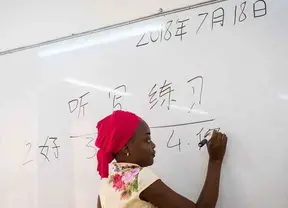 2018年7月18日
听写练习
2好 3 4.